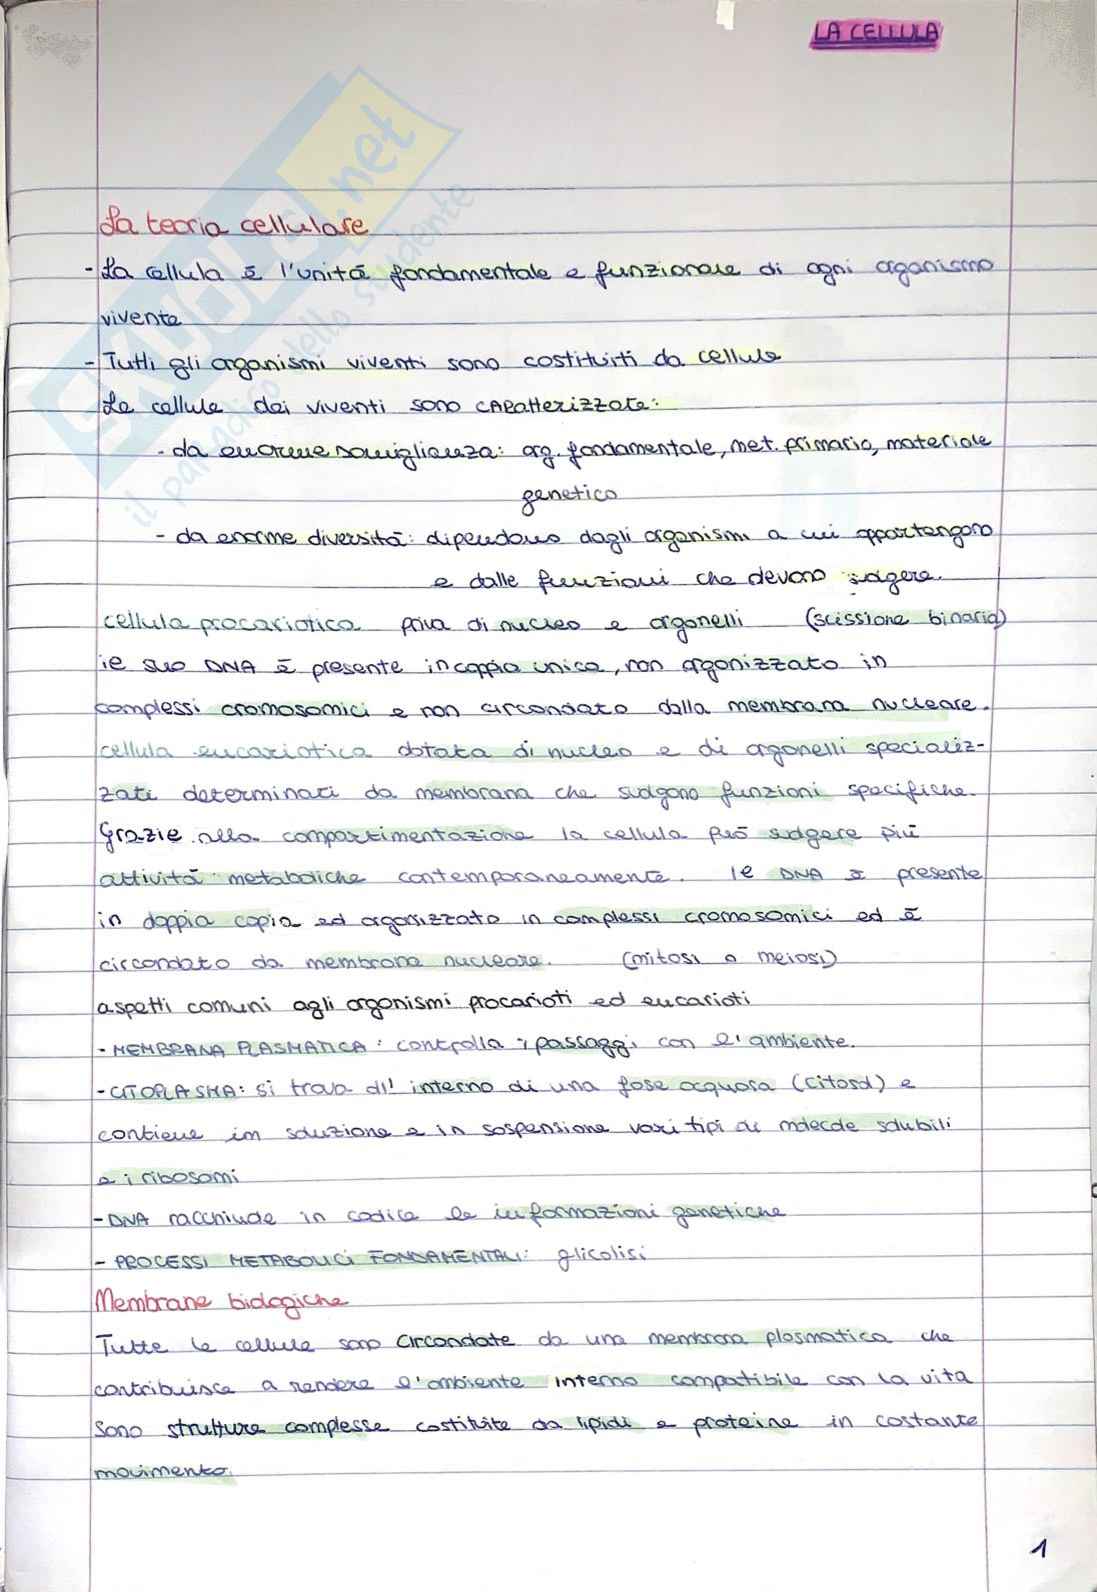 LA CELLULA
La teoria cellulare
- La cellula è l'unità fondamentale e funzionale di ogni organismo
vivente
- Tutti gli organismi viventi sono costituiti da cellule
Le cellule dei viventi sono CARatterizzate:
- da enorme somiglianza: org. fondamentale, met. primario, materiale
genetico
- da enorme diversità: dipendono dagli organismi a cui appartengono
e dalle funzioni che devono svolgere.
cellula procariotica priva di nucleo e organelli (scissione binaria)
il suo DNA è presente in coppia unica, non organizzato in
complessi cromosomici e non circondato dalla membrana nucleare.
cellula eucariotica dotata di nucleo e di organelli specializ-
zati determinati da membrana che svolgono funzioni specifiche.
Grazie alla compartimentazione la cellula può svolgere più
attività metaboliche contemporaneamente. Il DNA è presente
in doppia copia ed organizzato in complessi cromosomici ed è
circondato da membrana nucleare. (mitosi o meiosi)
aspetti comuni agli organismi procarioti ed eucarioti
- MEMBRANA PLASMATICA: controlla i passaggi con l'ambiente.
- CITOPLASMA: si trova all'interno di una fase acquosa (citosol) e
contiene in soluzione e in sospensione vari tipi di molecole solubili
e i ribosomi
- DNA racchiude in codice le informazioni genetiche
- PROCESSI METABOLICI FONDAMENTALI: glicolisi
Membrane biologiche
Tutte le cellule sono circondate da una membrana plasmatica che
contribuisce a rendere l'ambiente interno compatibile con la vita
Sono strutture complesse costituite da lipidi e proteine in costante
movimento.
1
SKUOLA.net
il paradiso dello studente